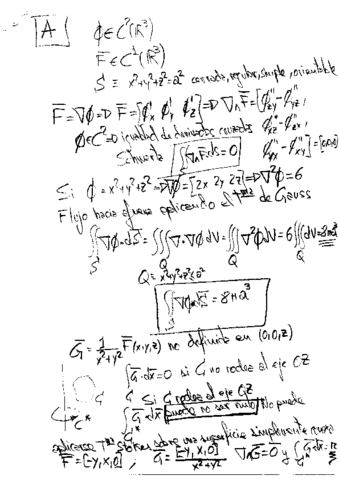 A φ∈C²(ℝ³)
F̄∈C¹(ℝ³)
S ≡ x²+y²+z²=a² cerrada, regular, simple, orientable
F̄=∇φ ⇒ F̄=[φ'x φ'y φ'z] ⇒ ∇∧F̄=[φ''zy-φ''yz,
φ∈C² ⇒ igualdad de derivadas cruzadas φ''xz-φ''zx,
Schwartz ∫∇∧F̄·ds̄=0 φ''yx-φ''xy]=[0,0,0]
Si φ=x²+y²+z² ⇒ ∇φ=[2x 2y 2z] ⇒ ∇²φ=6
Flujo hacia afuera aplicando el Tma de Gauss
∬∇φ·dS̄=∭∇·∇φdV=∭∇²φdV=6∭dV=8πa³
S Q Q Q
Q≡x²+y²+z²≤a²
∬∇φ·dS̄=8πa³
S
Ḡ=1/(x²+y²) F̄(x,y,z) no definida en (0,0,z)
∫Ḡ·dx̄=0 si C no rodea al eje OZ
C
Si C rodea al eje OZ
∫Ḡ·dx̄ puede no ser nulo No puedo
C*
aplicarse Tma Stokes sobre una superficie simplemente
F̄=[-y,x,0], Ḡ=[-y,x,0]/(x²+y²) ∇∧Ḡ=0̄ y ∫Ḡ·dx̄
C*